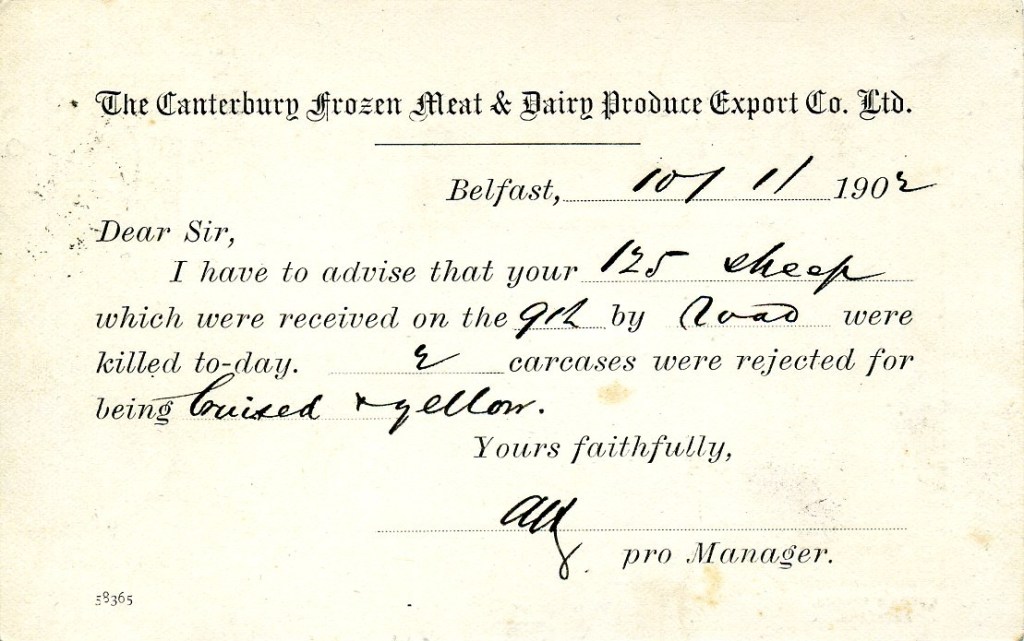 The Canterbury Frozen Meat & Dairy Produce Export Co. Ltd.
Belfast, 10/ 11/ 1902
Dear Sir,
I have to advise that your 125 sheep
which were received on the 9th by Road were
killed to-day. 2 carcases were rejected for
being bruised & yellow.
Yours faithfully,
pro Manager.
58365